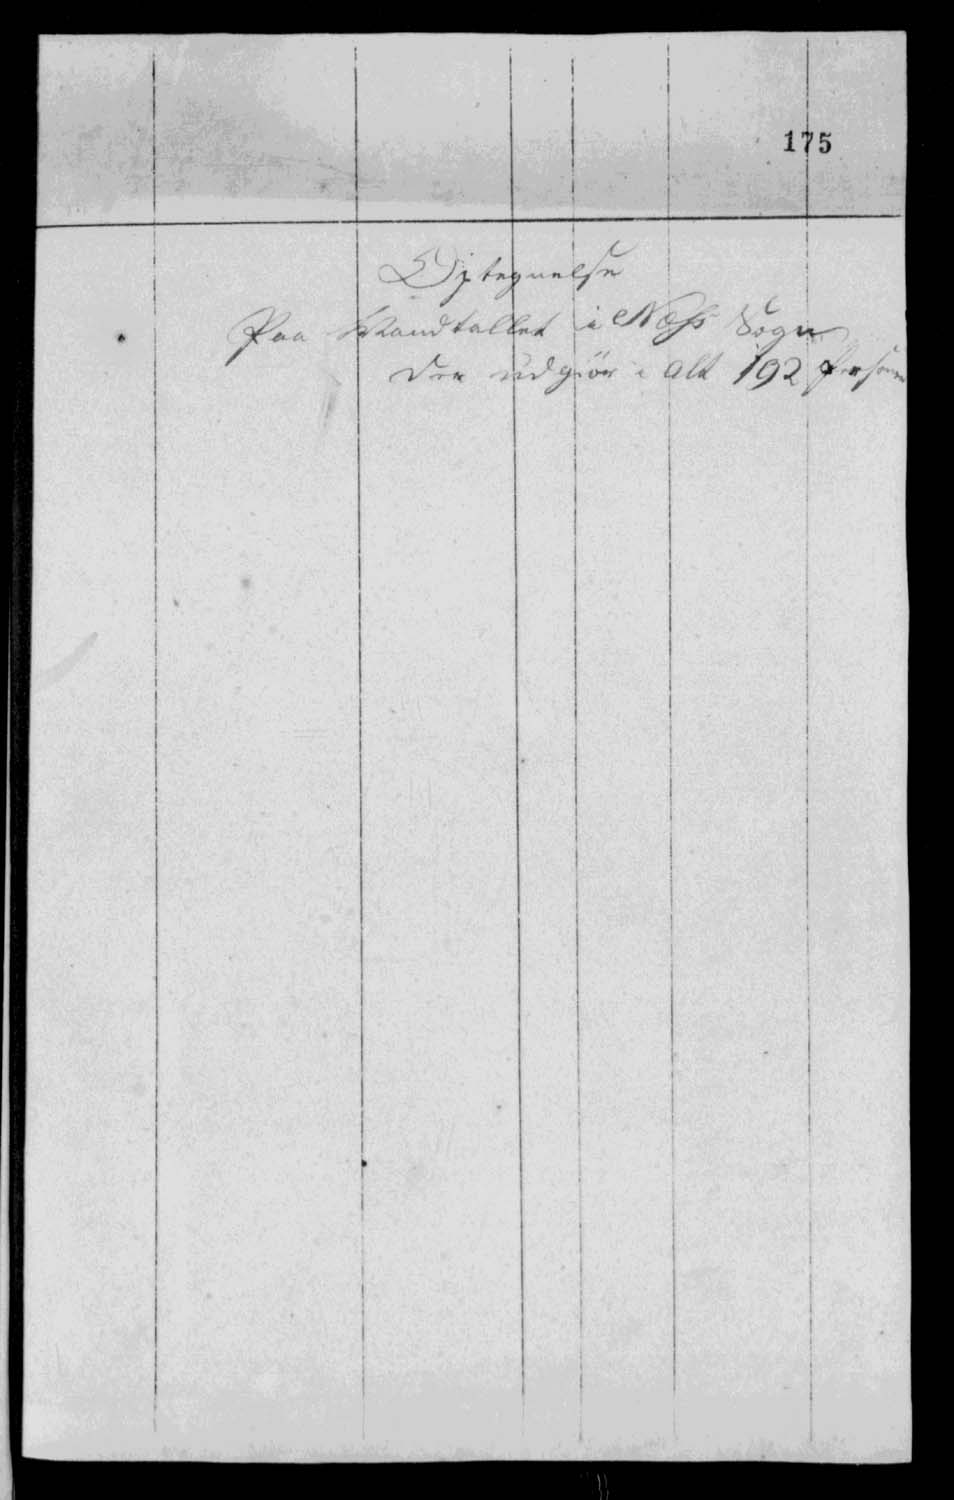 175
Optegnelse
Paa Mandtallet i Næss Sogn
der udgiör i alt 192 Personer